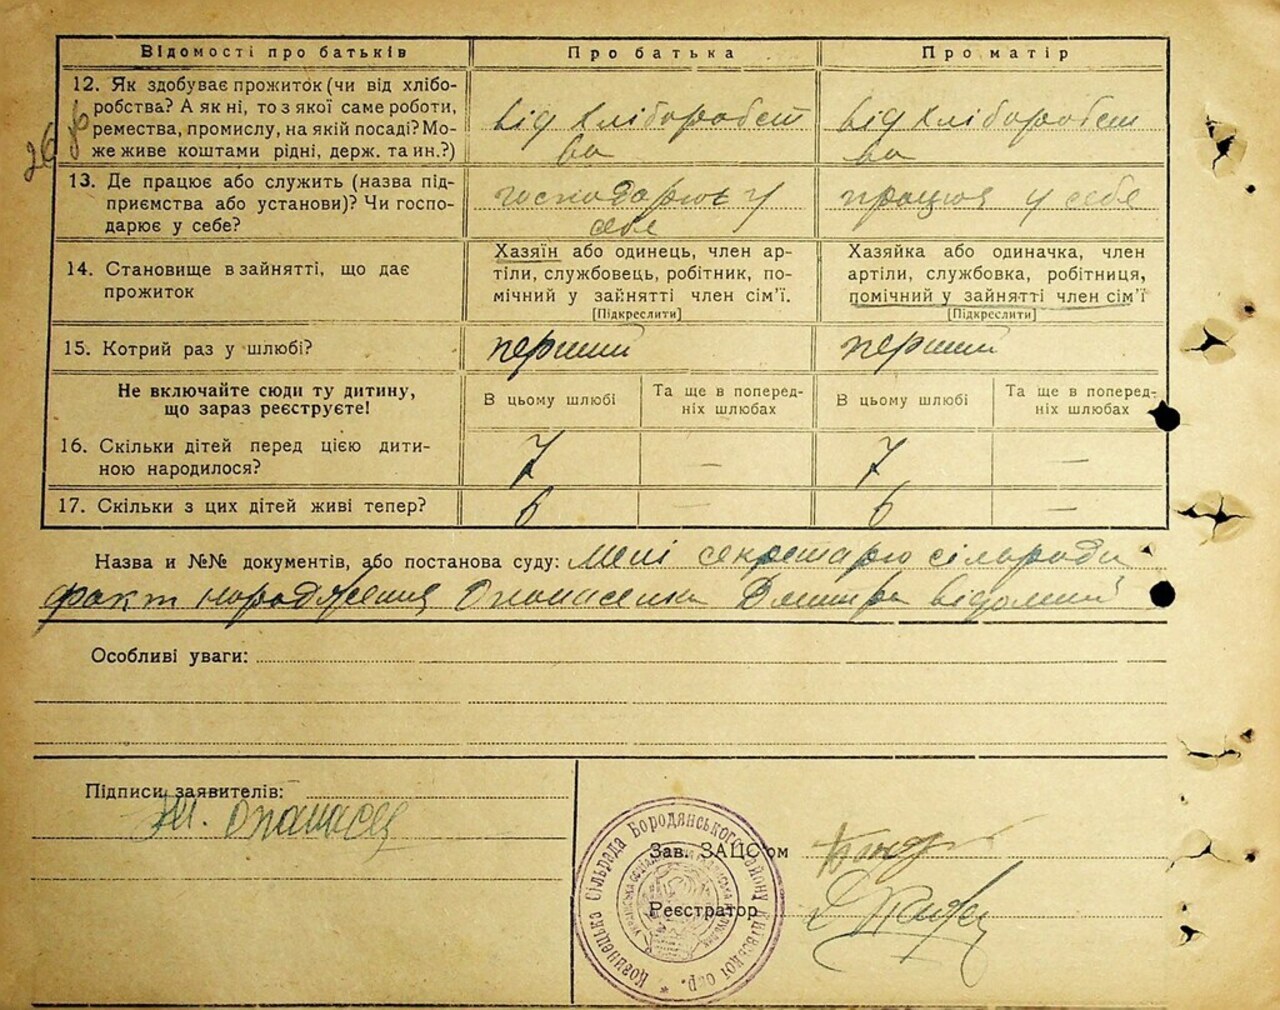 Відомості про батьків Про батька Про матір
12. Як здобуває прожиток (чи від хлібо-
робства? А як ні, то з якої саме роботи,
ремества, промислу, на якій посаді? Мо-
же живе коштами рідні, держ. та ин.?)
від хліборобст
ва
від хліборобст
ва
13. Де працює або служить (назва під-
приємства або установи)? Чи госпо-
дарює у себе?
господарює у
себе
працює у себе
14. Становище в зайнятті, що дає
прожиток
Хазяїн або одинець, член ар-
тілі, службовець, робітник, по-
мічний у зайнятті член сім’ї.
[Підкреслити]
Хазяйка або одиначка, член
артілі, службовка, робітниця,
помічний у зайнятті член сім’ї
[Підкреслити]
15. Котрий раз у шлюбі? перший перший
Не включайте сюди ту дитину,
що зараз реєструєте!
В цьому шлюбі
Та ще в поперед-
ніх шлюбах
В цьому шлюбі
Та ще в поперед-
ніх шлюбах
16. Скільки дітей перед цією дити-
ною народилося?
7 — 7 —
17. Скільки з цих дітей живі тепер? 6 — 6 —
Назва и №№ документів, або постанова суду: Мені секретарю сільради
факт народження Опанасенка Дмитра відомий
Особливі уваги:
Підписи заявителів:
Зав. ЗАЦС'ом
Реєстратор
Сільрада Бородянського району Київської обр.
26